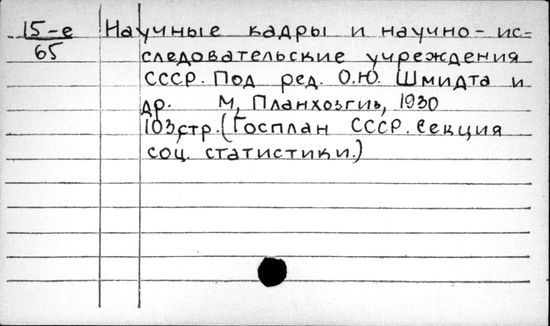 15-е
65
Научные кадры и научно-ис-
следовательские учреждения
СССР. Под ред. О.Ю. Шмидта и
др. М, Планхозгиз, 1930
103 стр. (Госплан СССР. Секция
соц. статистики.)